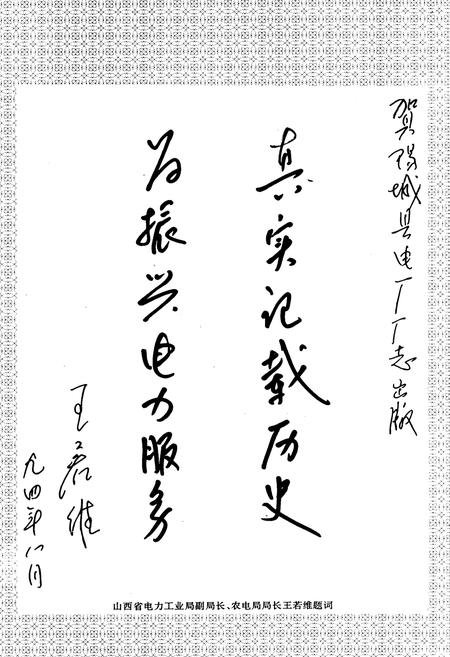 贺阳城县电厂厂志出版
真实记载历史
为振兴电力服务
王若维
九四年八月
山西省电力工业局副局长、农电局局长王若维题词